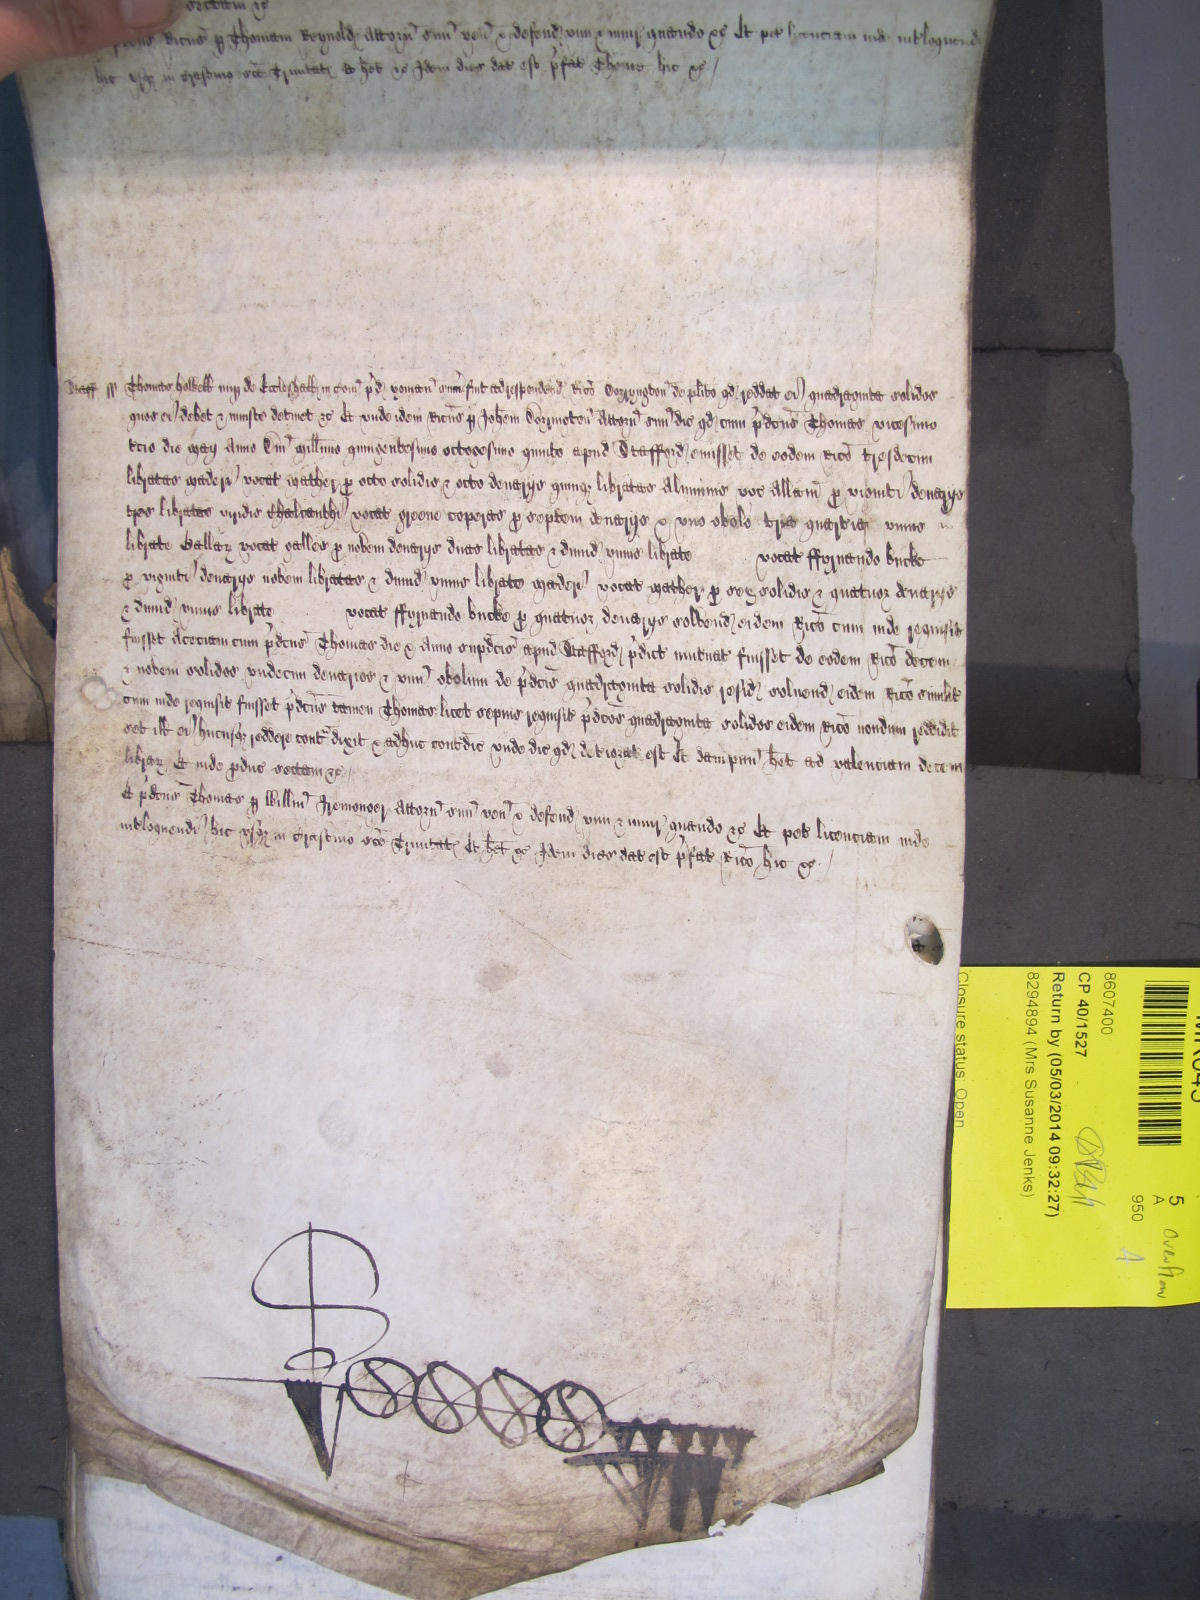 sectam &c
p̄dcus Ricus p Thomam Reynold Attorn suu ven & defend vim & iniur quando &c Et pet licenciam inde interloquendi
hic usq in crastino sce Trinitat Et het &c Idem dies dat est p̄fat Thome hic &c
Staff ss Thomas Holbek nup de Eccleshall in com p̄d yoman sum fuit ad respondend Rico Dorryngton de plito qd reddat ei quadraginta solidos
quos ei debet & iniuste detinet &c Et unde idem Ricus p Johem Dorington Attorn suu dic qd cum p̄dcus Thomas vicesimo
tcio die may Anno Dni millimo quingentesimo octogesimo quinto apud Stafford emisset de eodem Rico tresdecim
libratas maderi vocat mather p octo solidis & octo denarijs quinq libratas Aluminis voc Allam p viginti denarijs
tres libratas viridis Chalcanthi vocat greene coperas p septem denarijs & uno obolo tria quarteria unius
librate Gallar vocat galles p novem denarijs duas libratas & dimid unius librate vocat ffyrnando bucke
p viginti denarijs novem libratas & dimid unius librate maderi vocat mather p sex solidis & quatuor denarijs
& dimid unius librate vocat ffyrnando bucke p quatuor denarijs solvend eidem Rico cum inde requisit
fuisset Aceciam cum p̄dcus Thomas die & Anno supdcis apud Stafford p̄dict mutuat fuisset de eodem Rico decem
& novem solidos undecim denarios & unu obolum de p̄dcis quadraginta solidis resid solvend eidem Rico similit
cum inde requisit fuisset p̄dcus tamen Thomas licet sepius requisit p̄dcos quadraginta solidos eidem Rico nondum reddidit
set ill ei hucusq reddere contradixit & adhuc contradic unde dic qd deteriorat est Et dampnu het ad valenciam decem
librar Et inde pduc sectam &c
Et p̄dcus Thomas p Willm Iremonger Attorn suu ven & defend vim & iniur quando &c Et pet licenciam inde
interloquendi hic usq in crastino sce Trinitat Et het &c Idem dies dat est p̄fat Rico hic &c
8607400
CP 40/1527
Return by (05/03/2014 09:32:27)
8294894 (Mrs Susanne Jenks)
Closure status: Open
5
A
950
Overflow